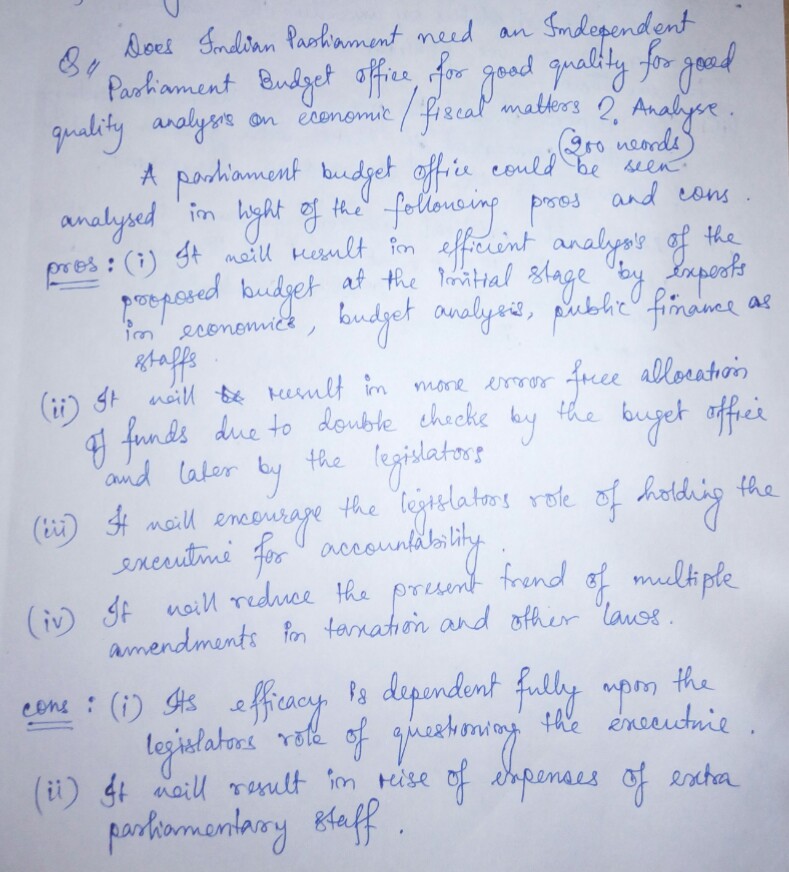 Q4 Does Indian Parliament need an Independent
Parliament Budget office, for good quality for good
quality analysis on economic/fiscal matters?. Analyse.
(200 words)
A parliament budget office could be seen.
analysed in light of the following pros and cons.
pros: (i) It will result in efficient analysis of the
proposed budget at the initial stage by experts
in economics, budget analysis, public finance as
staffs.
(ii) It will be result in more error free allocation
of funds due to double checks by the buget office
and later by the legislators
(iii) It will encourage the legislators role of holding the
executive for accountability.
(iv) It will reduce the present trend of multiple
amendments in taxation and other laws.
cons: (i) Its efficacy is dependent fully upon the
legislators role of questioning the executive.
(ii) It will result in reise of expenses of extra
parliamentary staff.